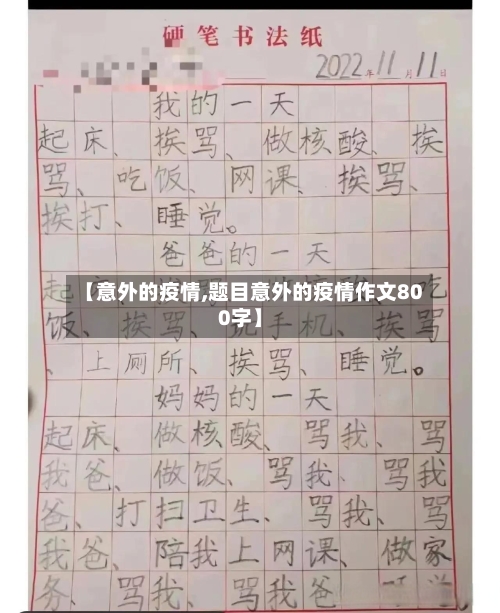 硬笔书法纸
2022年11月11日
我的一天
起床、挨骂、做核酸、挨
骂、吃饭、网课、挨骂、
挨打、睡觉。
爸爸的一天
【意外的疫情,题目意外的疫情作文80
0字】
起 吃
饭、挨骂、玩手机、挨骂
、上厕所、挨骂、睡觉。
妈妈的一天
起床、做核酸、骂我、骂
我爸、做饭、骂我、骂我
爸、打扫卫生、骂我、骂
我爸、陪我上网课、做家
务、骂我、骂我爸